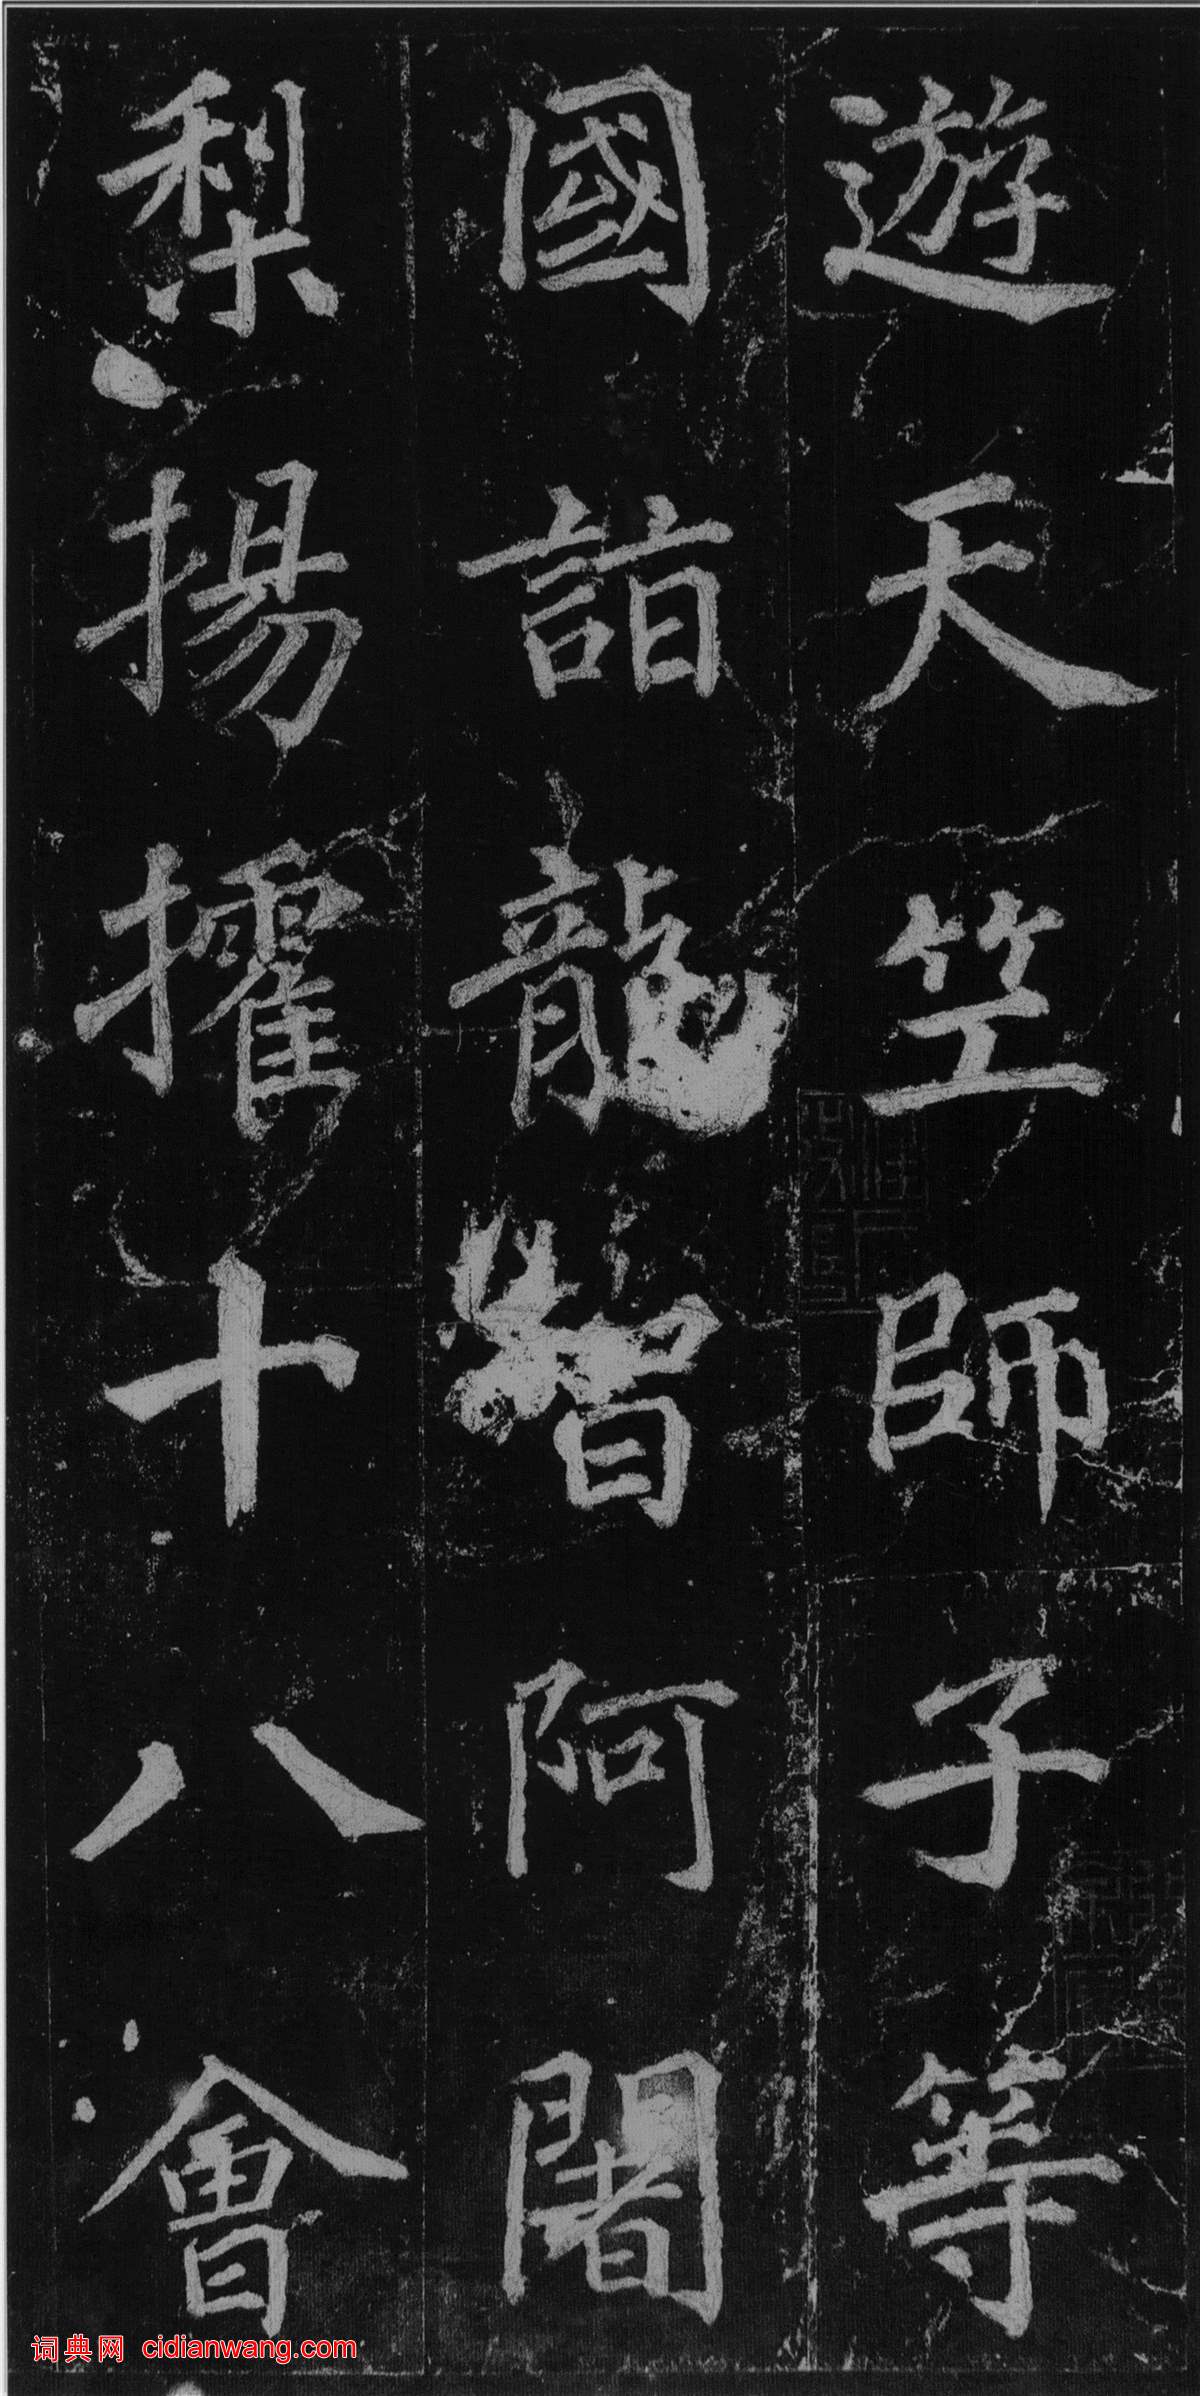 遊天竺師子等
國詣龍智阿闍
梨揚攉十八會
词典网 cidianwang.com